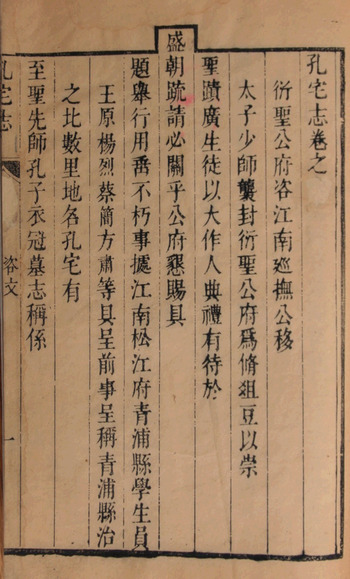 孔宅志卷之
衍聖公府咨江南巡撫公移
太子少師襲封衍聖公府爲脩俎豆以崇
聖蹟廣生徒以大作人典禮有待於
盛朝疏請必關乎公府懇賜具
題舉行用垂不朽事據江南松江府青浦縣學生員
王原楊烈蔡簡方肅等具呈前事呈稱青浦縣治
之北數里地名孔宅有
至聖先師孔子衣冠墓志稱係
孔宅志
咨文
一